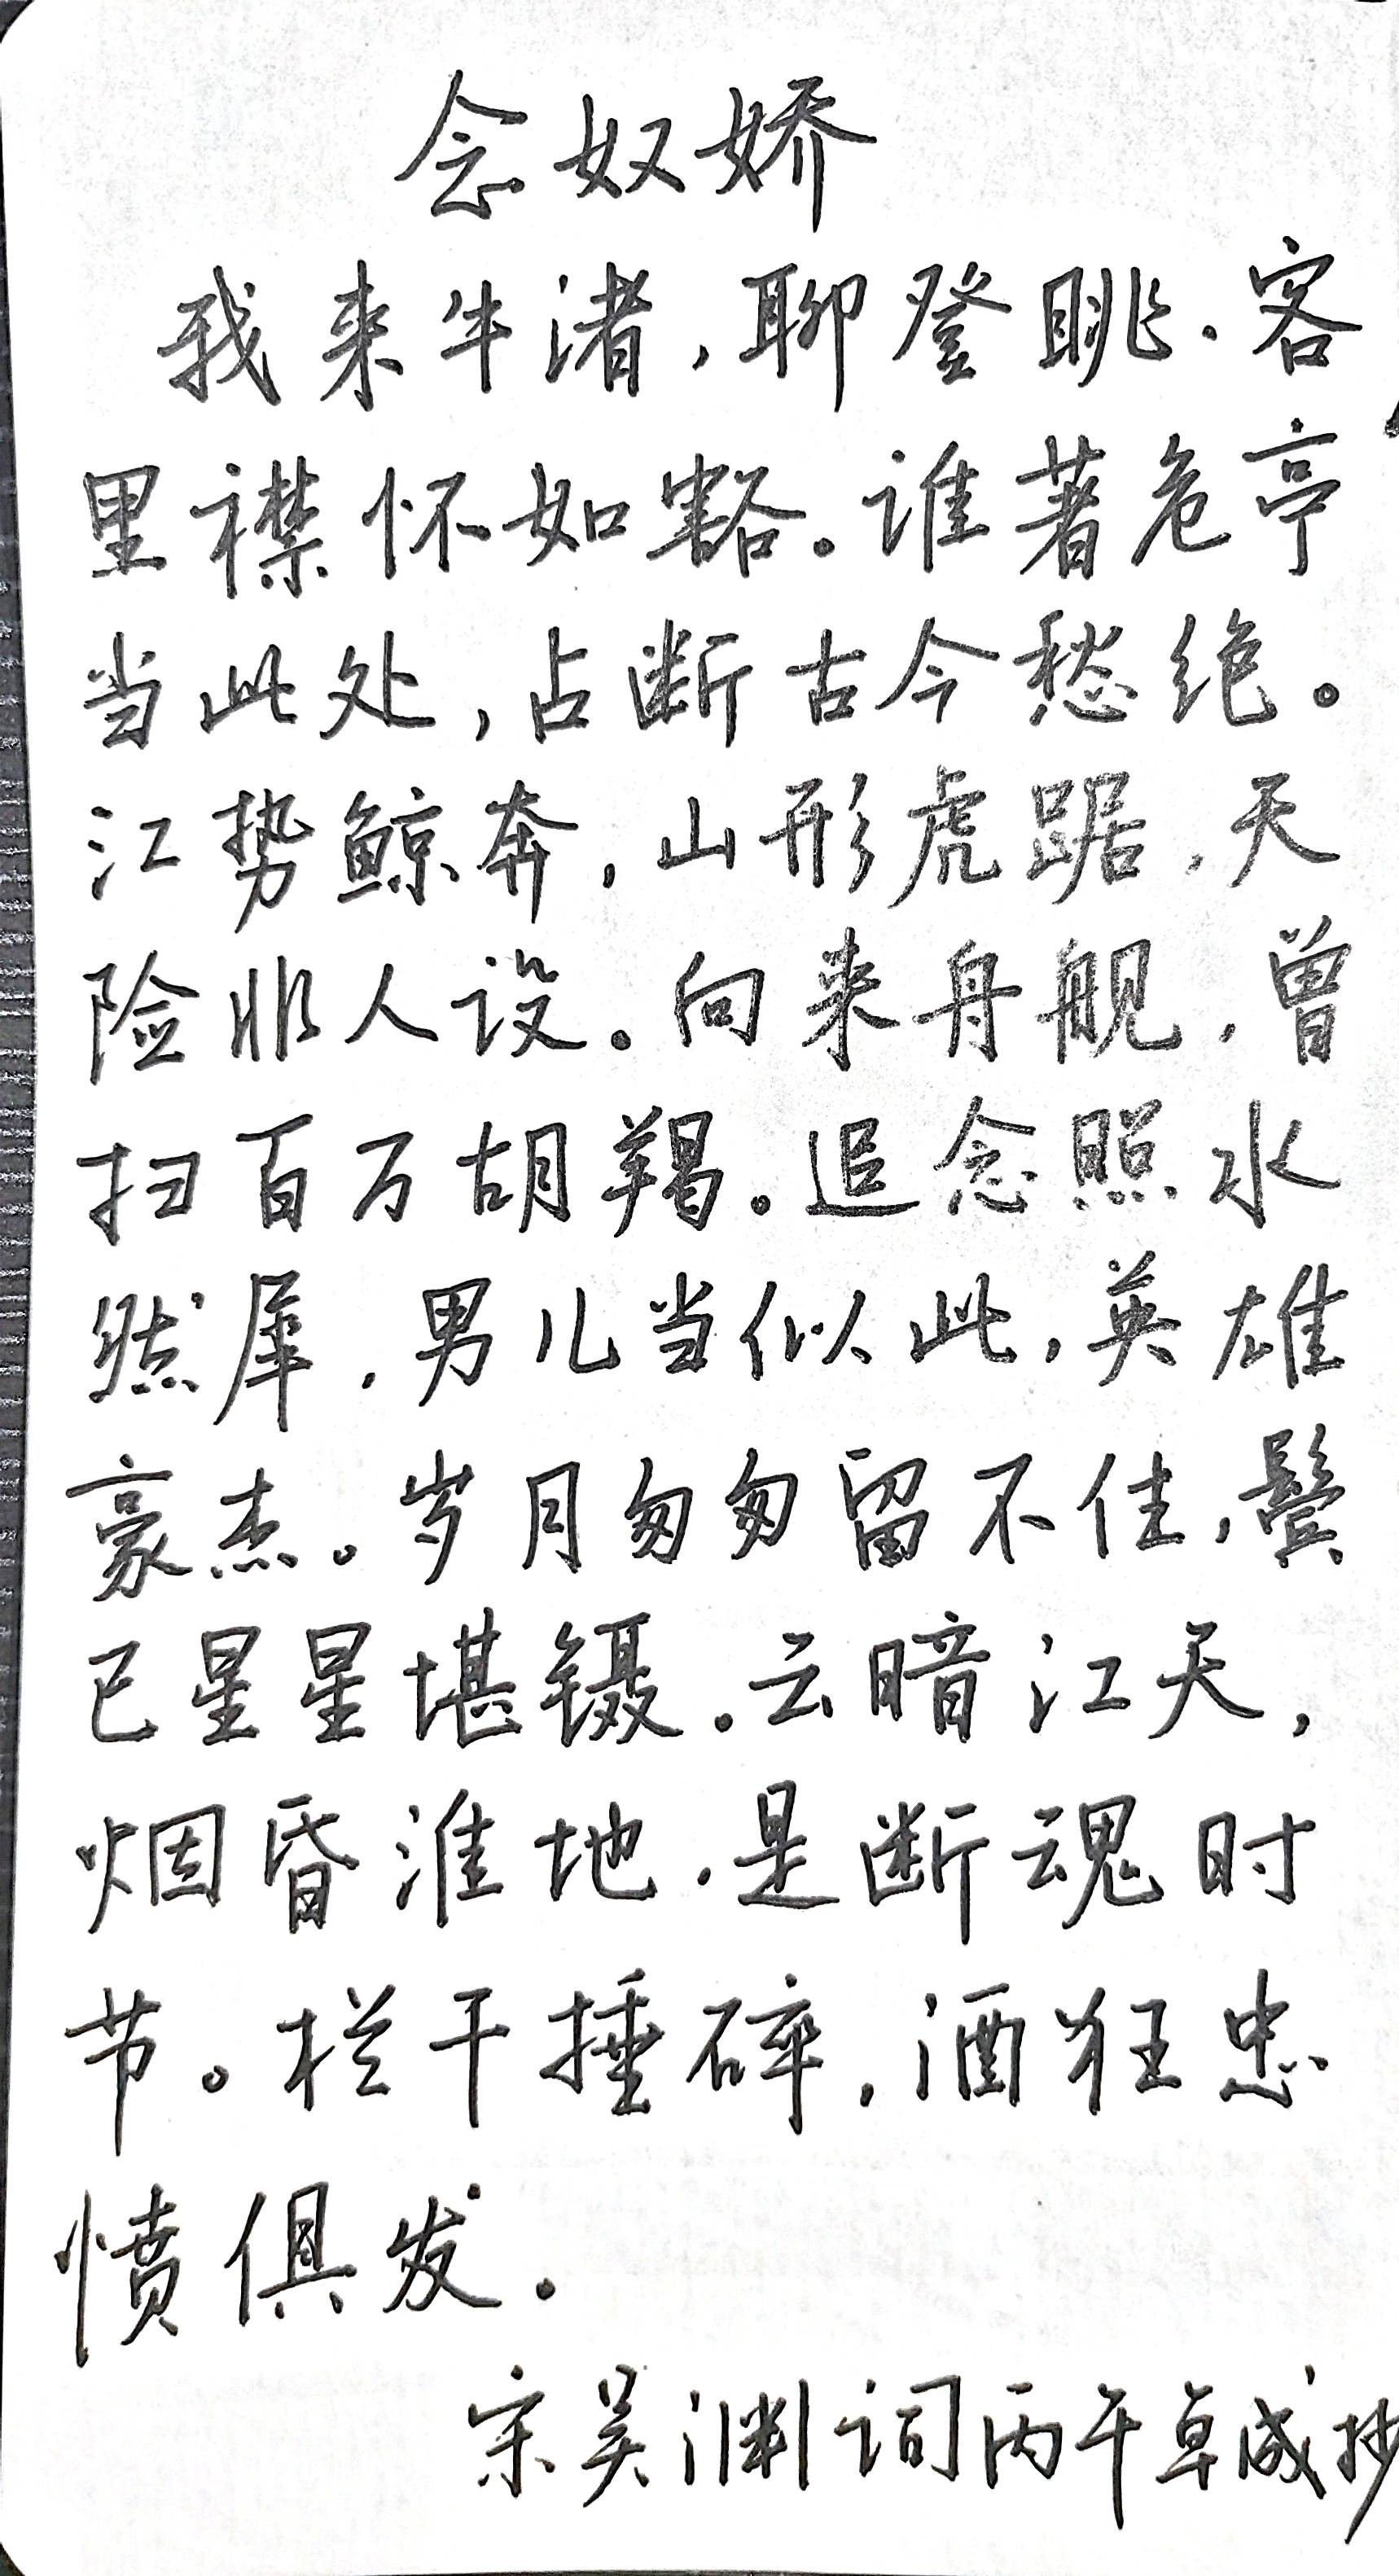 念奴娇
我来牛渚，聊登眺，客
里襟怀如豁。谁著危亭
当此处，占断古今愁绝。
江势鲸奔，山形虎踞，天
险非人设。向来舟舰，曾
扫百万胡羯。追念照水
然犀，男儿当似此，英雄
豪杰。岁月匆匆留不住，鬓
已星星堪镊。云暗江天，
烟昏淮地，是断魂时
节。栏干捶碎，酒狂忠
愤俱发。
宋吴渊词丙午卓成抄